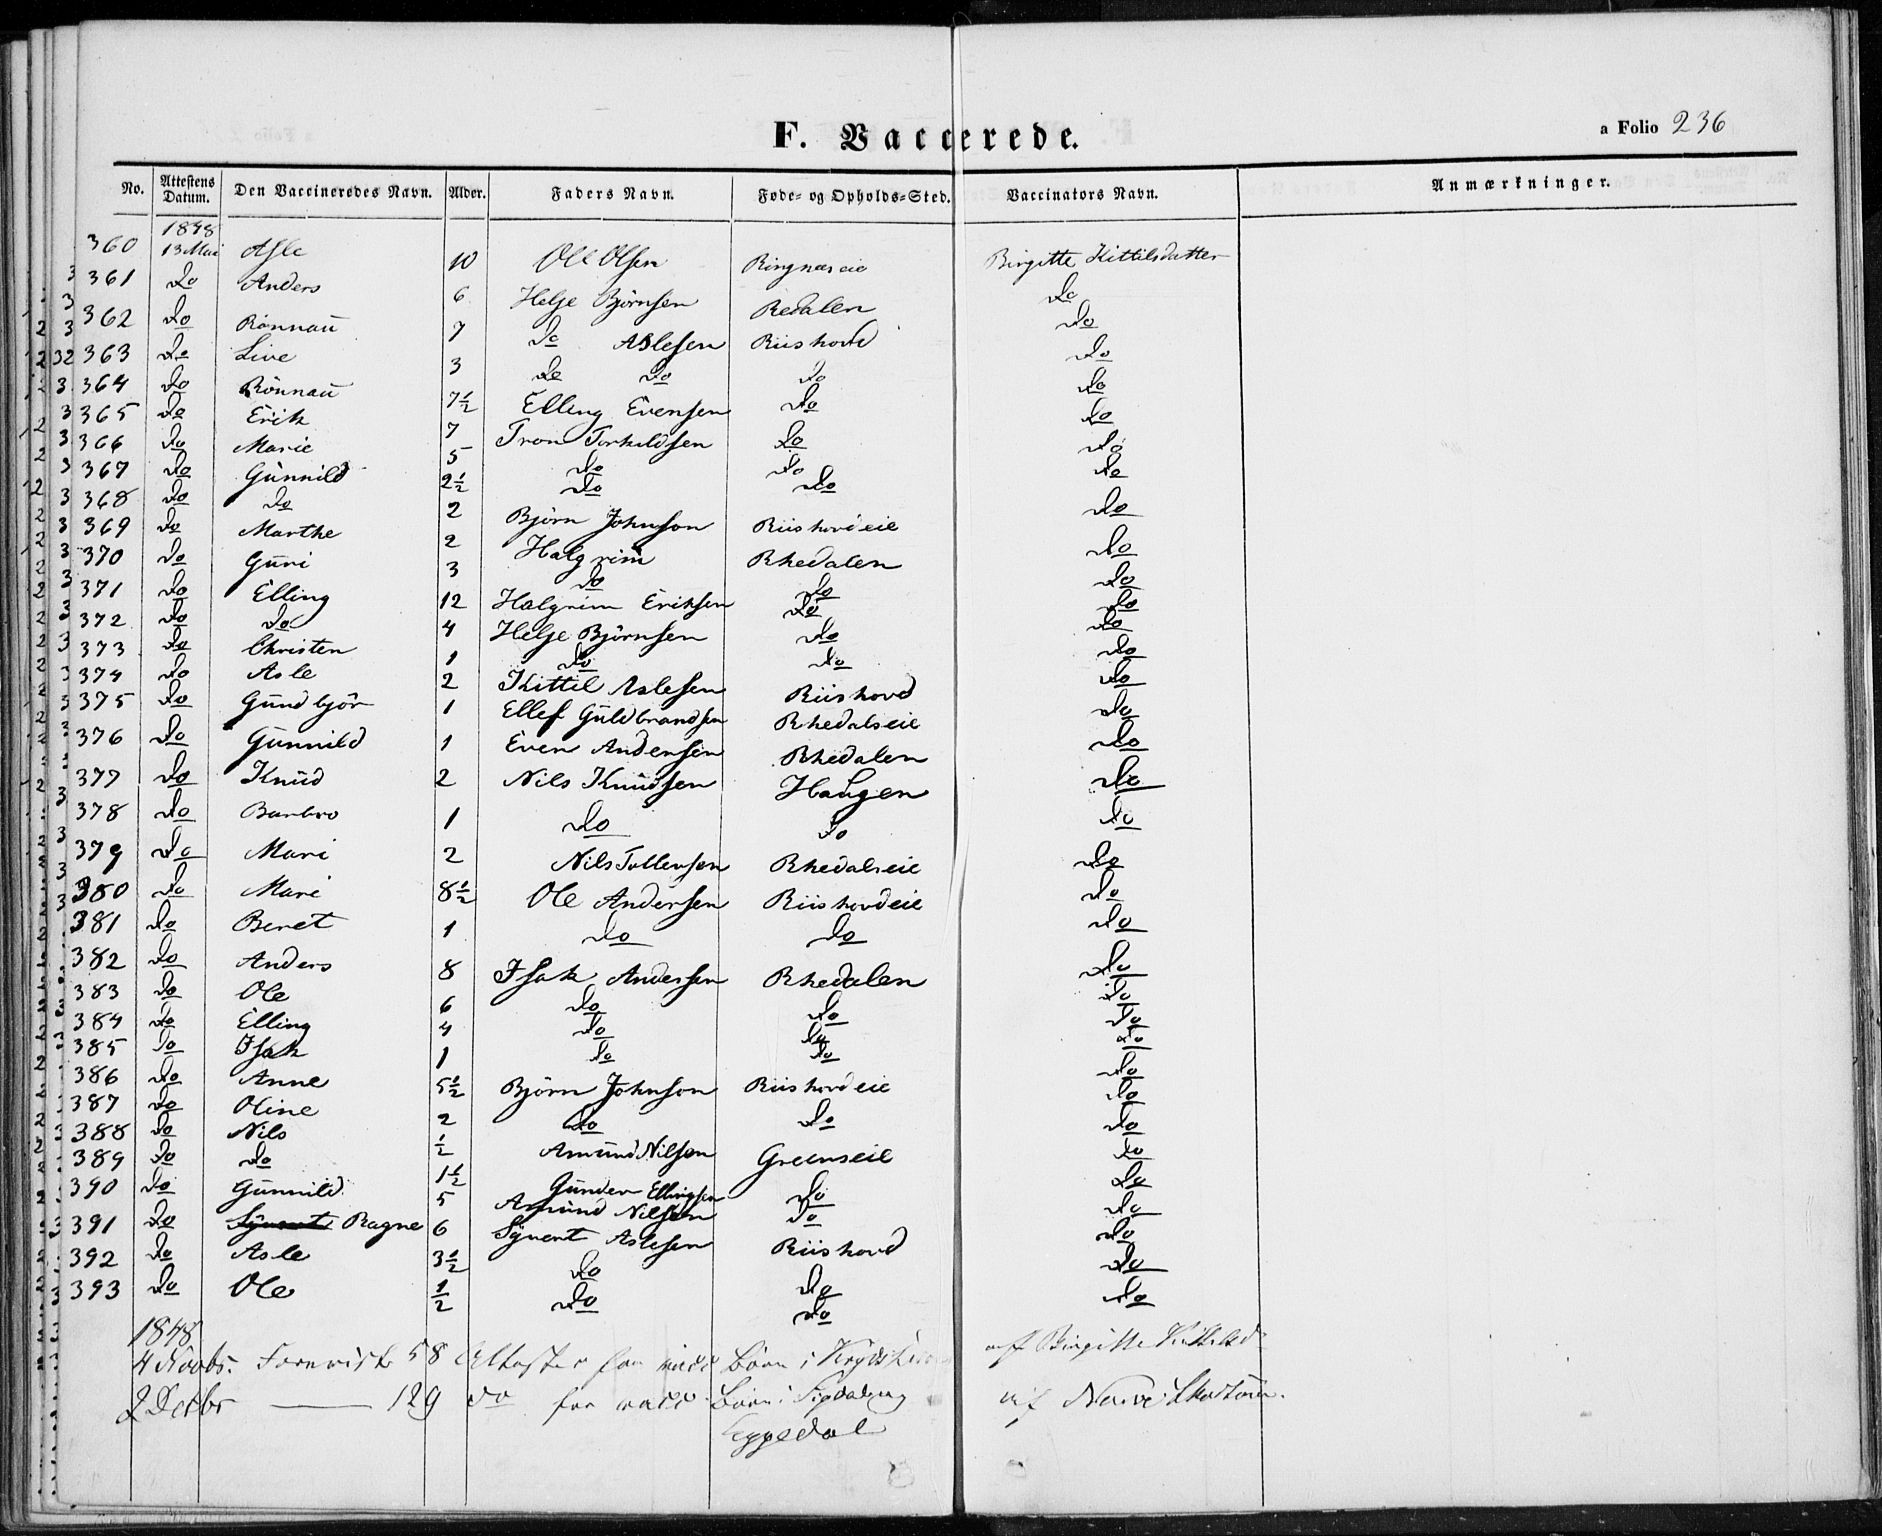 F. Vaccerede.
a Folio 236
No. Attestens Datum. Den Vaccineredes Navn. Alder. Faders Navn. Føde- og Opholds-Sted. Vaccinators Navn. Anmærkninger.
1848
360 13 Mai Asle 10 Ole Olsen Ringnæseie Birgitte Kittilsdatter
361 Do Anders 6 Helje Björnsen Redalen Do
362 Do Rönnau 7 Do Aslesen Riishovd Do
363 Do Live 3 Do Do Do Do
364 Do Rönnau 7½ Elling Evensen Do Do
365 Do Erik 7 Tron Torkildsen Do Do
366 Do Marie 5 Do Do Do
367 Do Gunnild 2½ Do Do Do
368 Do Do 2 Björn Johnson Riishovdeie Do
369 Do Marthe 2 Halgrim Rhedalen Do
370 Do Guri 3 Do Do Do
371 Do Elling 12 Halgrim Eriksen Do Do
372 Do Do 4 Helje Björnsen Do Do
373 Do Christen 1 Do Do Do
374 Do Asle 2 Kittil Aslesen Riishovd Do
375 Do Gundbjör 1 Ellef Guldbrandsen Rhedalseie Do
376 Do Gunnild 1 Even Andersen Rhedalen Do
377 Do Knud 2 Nils Knudsen Haugen Do
378 Do Barbro 1 Do Do Do
379 Do Mari 2 Nils Tollevsen Rhedalseie Do
380 Do Mari 8½ Ole Andersen Riishovdeie Do
381 Do Beret 1 Do Do Do
382 Do Anders 8 Isak Andersen Rhedalen Do
383 Do Ole 6 Do Do Do
384 Do Elling 4 Do Do Do
385 Do Isak 1 Do Do Do
386 Do Anne 5½ Björn Johnson Riishovdeie Do
387 Do Oline 2 Do Do Do
388 Do Nils ½ Amund Nilsen Greenseie Do
389 Do Do 1½ Gunder Ellingsen Do Do
390 Do Gunnild 5 Amund Nilsen Do Do
391 Do Ragne 6 Synent Aslesen Riishovd Do
392 Do Asle 3½ Do Do Do
393 Do Ole ½ Do Do Do
1848
4 Novbr. 58 Attester for vacc Börn i af Birgitte
2 Decbr — 129 do for vacc Börn i Sigdal og af
Eggedal